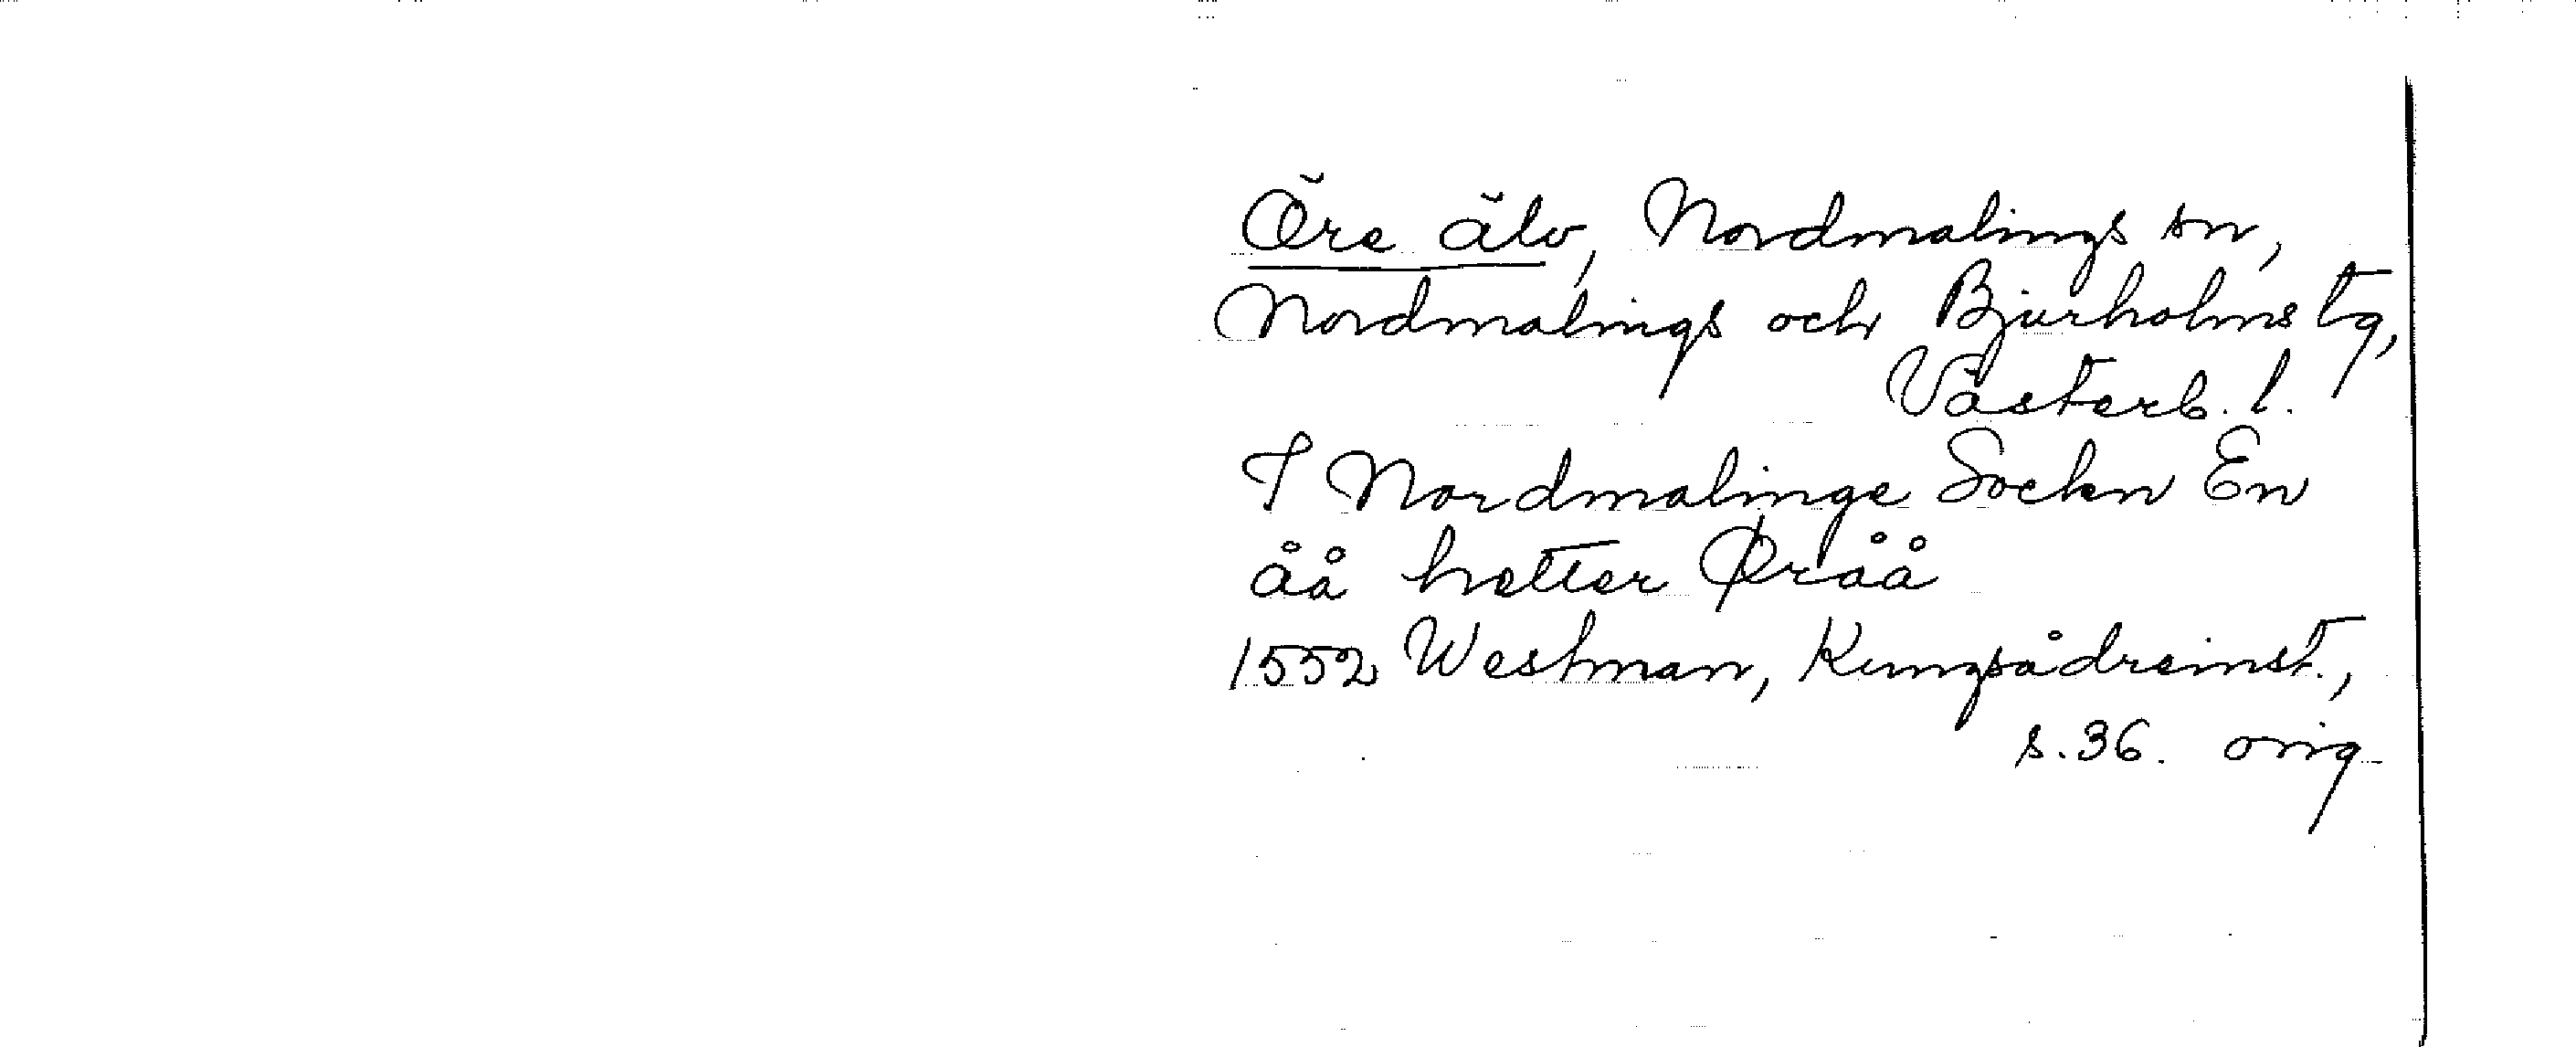 Öre älv, Nordmalings sn,
Nordmalings och Bjurholms tg,
Västerb. l.
I Nordmalinge Sockn En
åå hetter Øråå
1552 Westman, Kungsådreinst.,
s. 36. orig